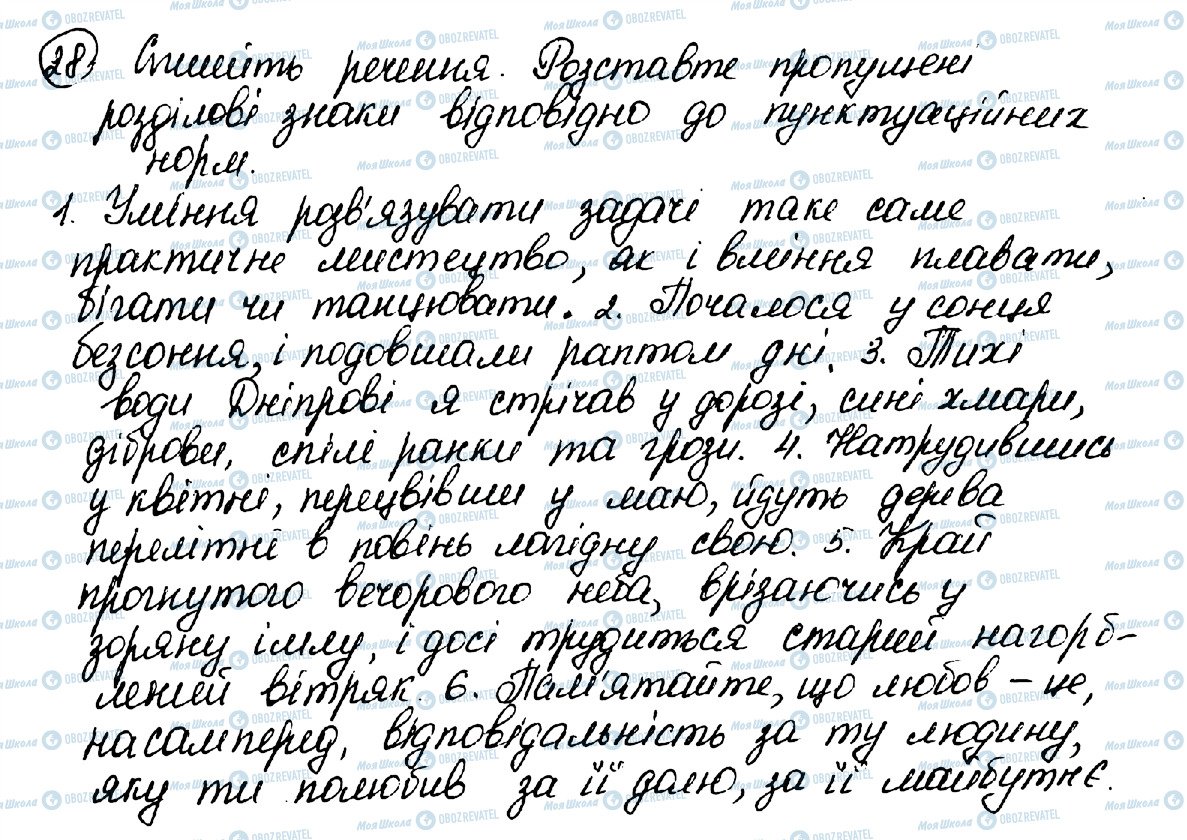 28. Спишіть речення. Розставте пропущені
розділові знаки відповідно до пунктуаційних
норм.
1. Уміння розв'язувати задачі таке саме
практичне мистецтво, як і вміння плавати,
бігати чи танцювати. 2. Почалося у сонця
безсоння, і подовшали раптом дні. 3. Тихі
води Дніпрові я стрічав у дорозі, сині хмари,
діброви, спілі ранки та грози. 4. Натрудившись
у квітні, перецвівши у маю, йдуть дерева
перелітні в повінь лагідну свою. 5. Край
прогнутого вечорового неба, врізаючись у
зоряну імлу, і досі трудиться старий нагорб-
лений вітряк. 6. Пам'ятайте, що любов – це,
насамперед, відповідальність за ту людину,
яку ти полюбив за її долю, за її майбутнє.